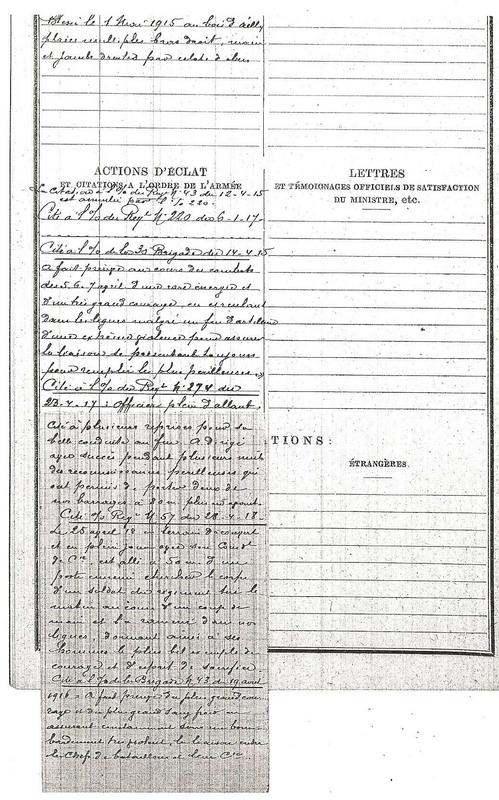 Blessé le 1 Mai 1915 au bois d'ailly
plaies multiples bras droit, main
et jambe droites par éclats d'obus
ACTIONS D'ÉCLAT
ET CITATIONS A L'ORDRE DE L'ARMÉE
La citation à l'o/ du Regt N° 43 du 12-4-15
est annulée par l'o/ 220.
Cité à l'o/ du Regt N° 220 du 6-1-17
Cité à l'o/ de la Brigade du 14-4-15
a fait preuve au cours des combats
des 5. 6. 7 april d'une rare énergie et
d'un très grand courage, en circulant
dans les lignes malgré un feu d'artillerie
d'une extrême violence pour assurer
la liaison se présentant toujours
pour remplir les plus périlleuses.
Cité à l'o/ du Regt N° 274 du
23-4-17 : Officier plein d'allant,
Cité à plusieurs reprises pour sa
belle conduite au feu. A dirigé
avec succès pendant plusieurs nuits
des reconnaissances périlleuses qui
ont permis de porter deux de
nos barrages à 80 m plus en avant
Cité o/ Regt N° 57 du 28-4-18-
Le 25 april 18 en terrain découvert
et en plein jour avec son Comdt
de Cie est allé à 50 m d'une
poste ennemi chercher le corps
d'un soldat du régiment tué le
matin au cours d'un coup de
main et l'a ramené dans nos
lignes, donnant ainsi à ses
hommes le plus bel exemple de
courage et d'esprit de sacrifice
Cité à l'o/ de la Brigade N° 43 du 19 avril
1916 : A fait preuve du plus grand cou-
rage et du plus grand sang froid en
assurant constamment sous un bom-
bardement très violent, la liaison entre
le Chef de bataillon et leur Cie
LETTRES
ET TÉMOIGNAGES OFFICIELS DE SATISFACTION
DU MINISTRE, etc.
TIONS :
ÉTRANGÈRES.